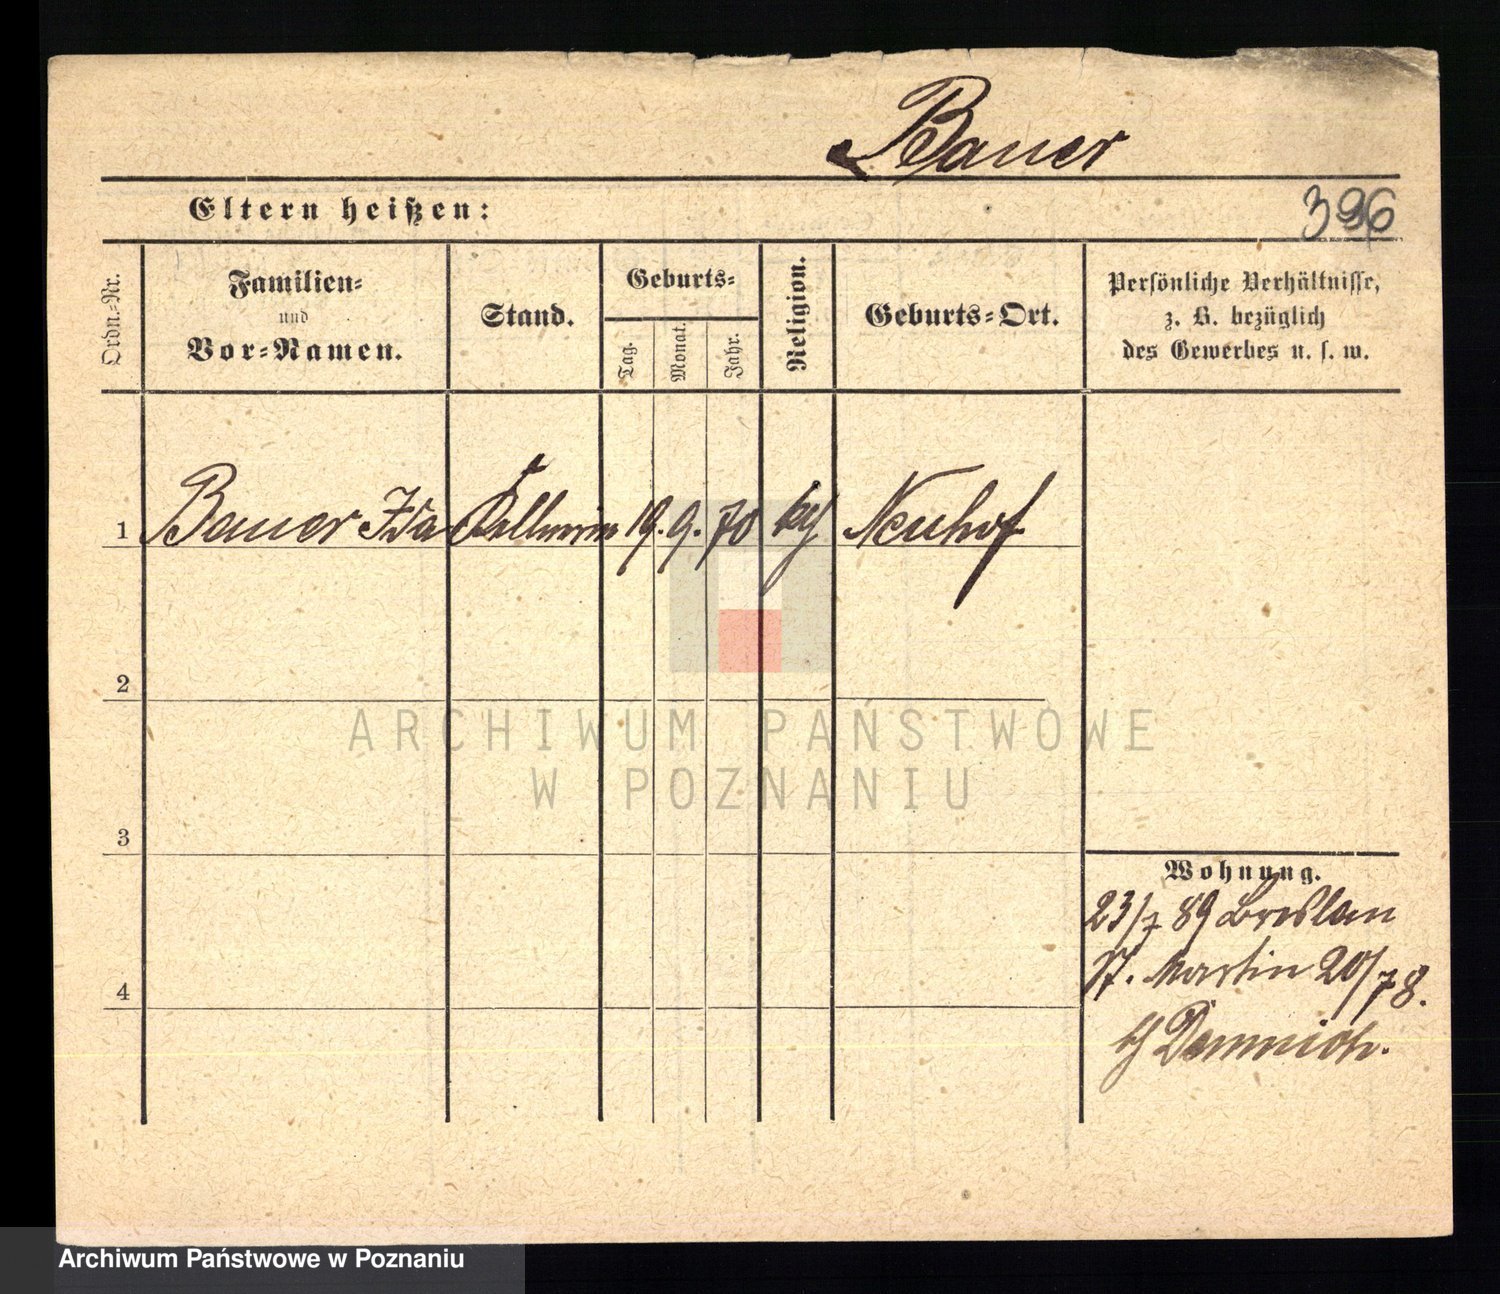 Bauer
Eltern heißen:
396
Ordn.-Nr.
Familien-
und
Vor-Namen.
Stand.
Geburts-
Tag.
Monat.
Jahr.
Religion.
Geburts-Ort.
Persönliche Verhältnisse,
z. B. bezüglich
des Gewerbes u. s. w.
1 Bauer Ida Kellnerin 19. 9. 70 Neuhof
2
ARCHIWUM PAŃSTWOWE
W POZNANIU
3
Wohnung.
23/7 89 Breslau
4
Martin 20/78.
Archiwum Państwowe w Poznaniu